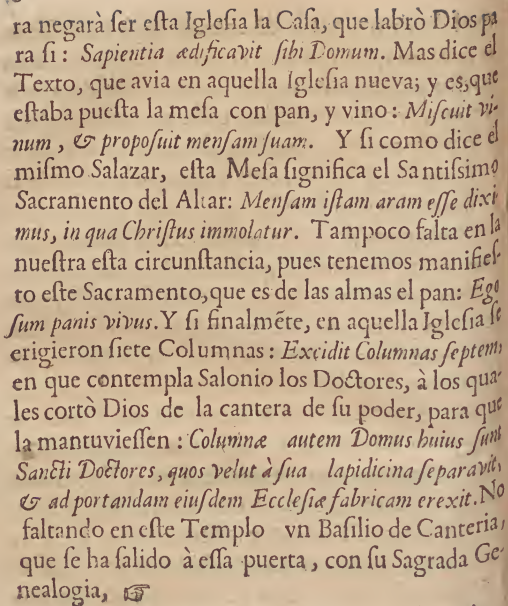 ra negarà ſer eſta Igleſia la Caſa, que labrò Dios pa
ra ſi: Sapientia ædificavit ſibi Domum. Mas dice el
Texto, que avia en aquella Igleſia nueva; y es, que
eſtaba pueſta la meſa con pan, y vino: Miſcuit vi-
num, & propoſuit menſam ſuam. Y ſi como dice el
miſmo Salazar, eſta Meſa ſignifica el Santiſsimo
Sacramento del Altar: Menſam iſtam aram eſſe dixi
mus, in qua Chriſtus immolatur. Tampoco falta en la
nueſtra eſta circunſtancia, pues tenemos manifieſ-
to eſte Sacramento, que es de las almas el pan: Ego
ſum panis vivus. Y ſi finalmẽte, en aquella Igleſia ſe
erigieron ſiete Columnas: Excidit Columnas ſeptem,
en que contempla Salonio los Doctores, à los qua-
les cortò Dios de la cantera de ſu poder, para que
la mantuvieſſen: Columnæ autem Domus huius ſunt
Sancti Doctores, quos velut à ſua lapidicina ſeparavit,
& ad portandam eiuſdem Eccleſiæ fabricam erexit. No
faltando en eſte Templo vn Baſilio de Canteria,
que ſe ha ſalido à eſſa puerta, con ſu Sagrada Ge-
nealogia, ☞